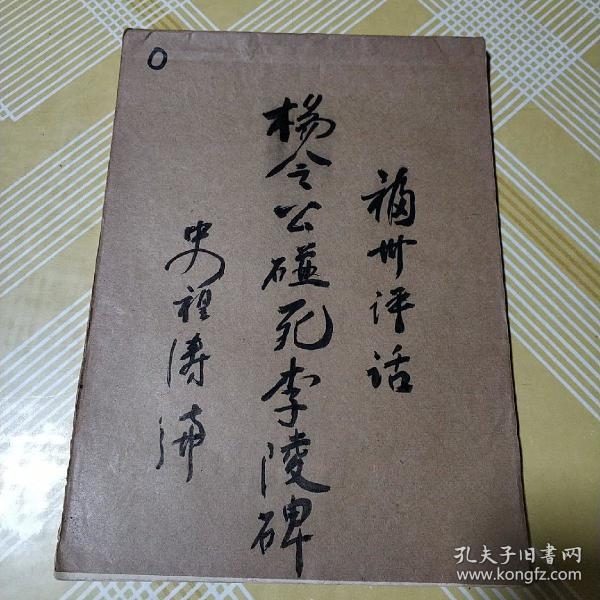 福州评话
杨令公碰死李陵碑
史禄涛
孔夫子旧书网
www.kongfz.com